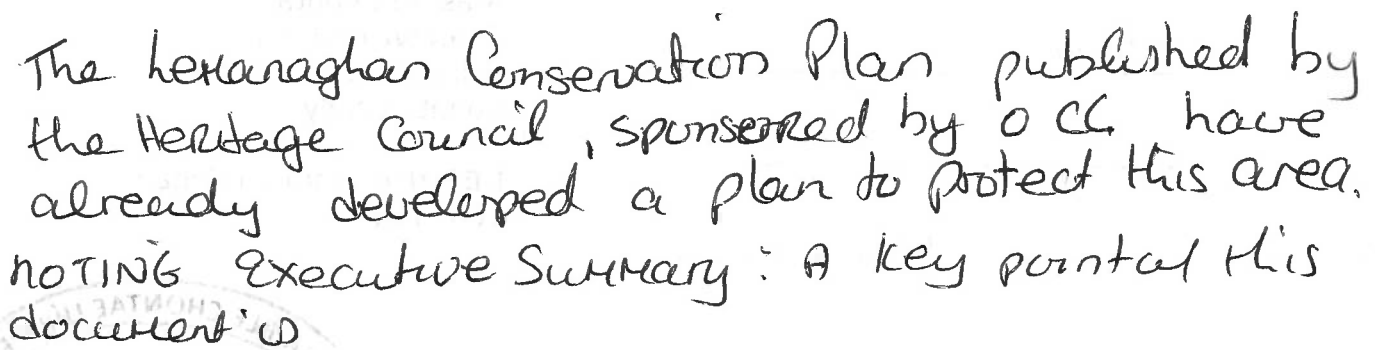 The Lemanaghan Conservation Plan published by
the Heritage Council, sponsered by OCC have
already developed a plan to protect this area.
NOTING Executive Summary: A key point of this
document is